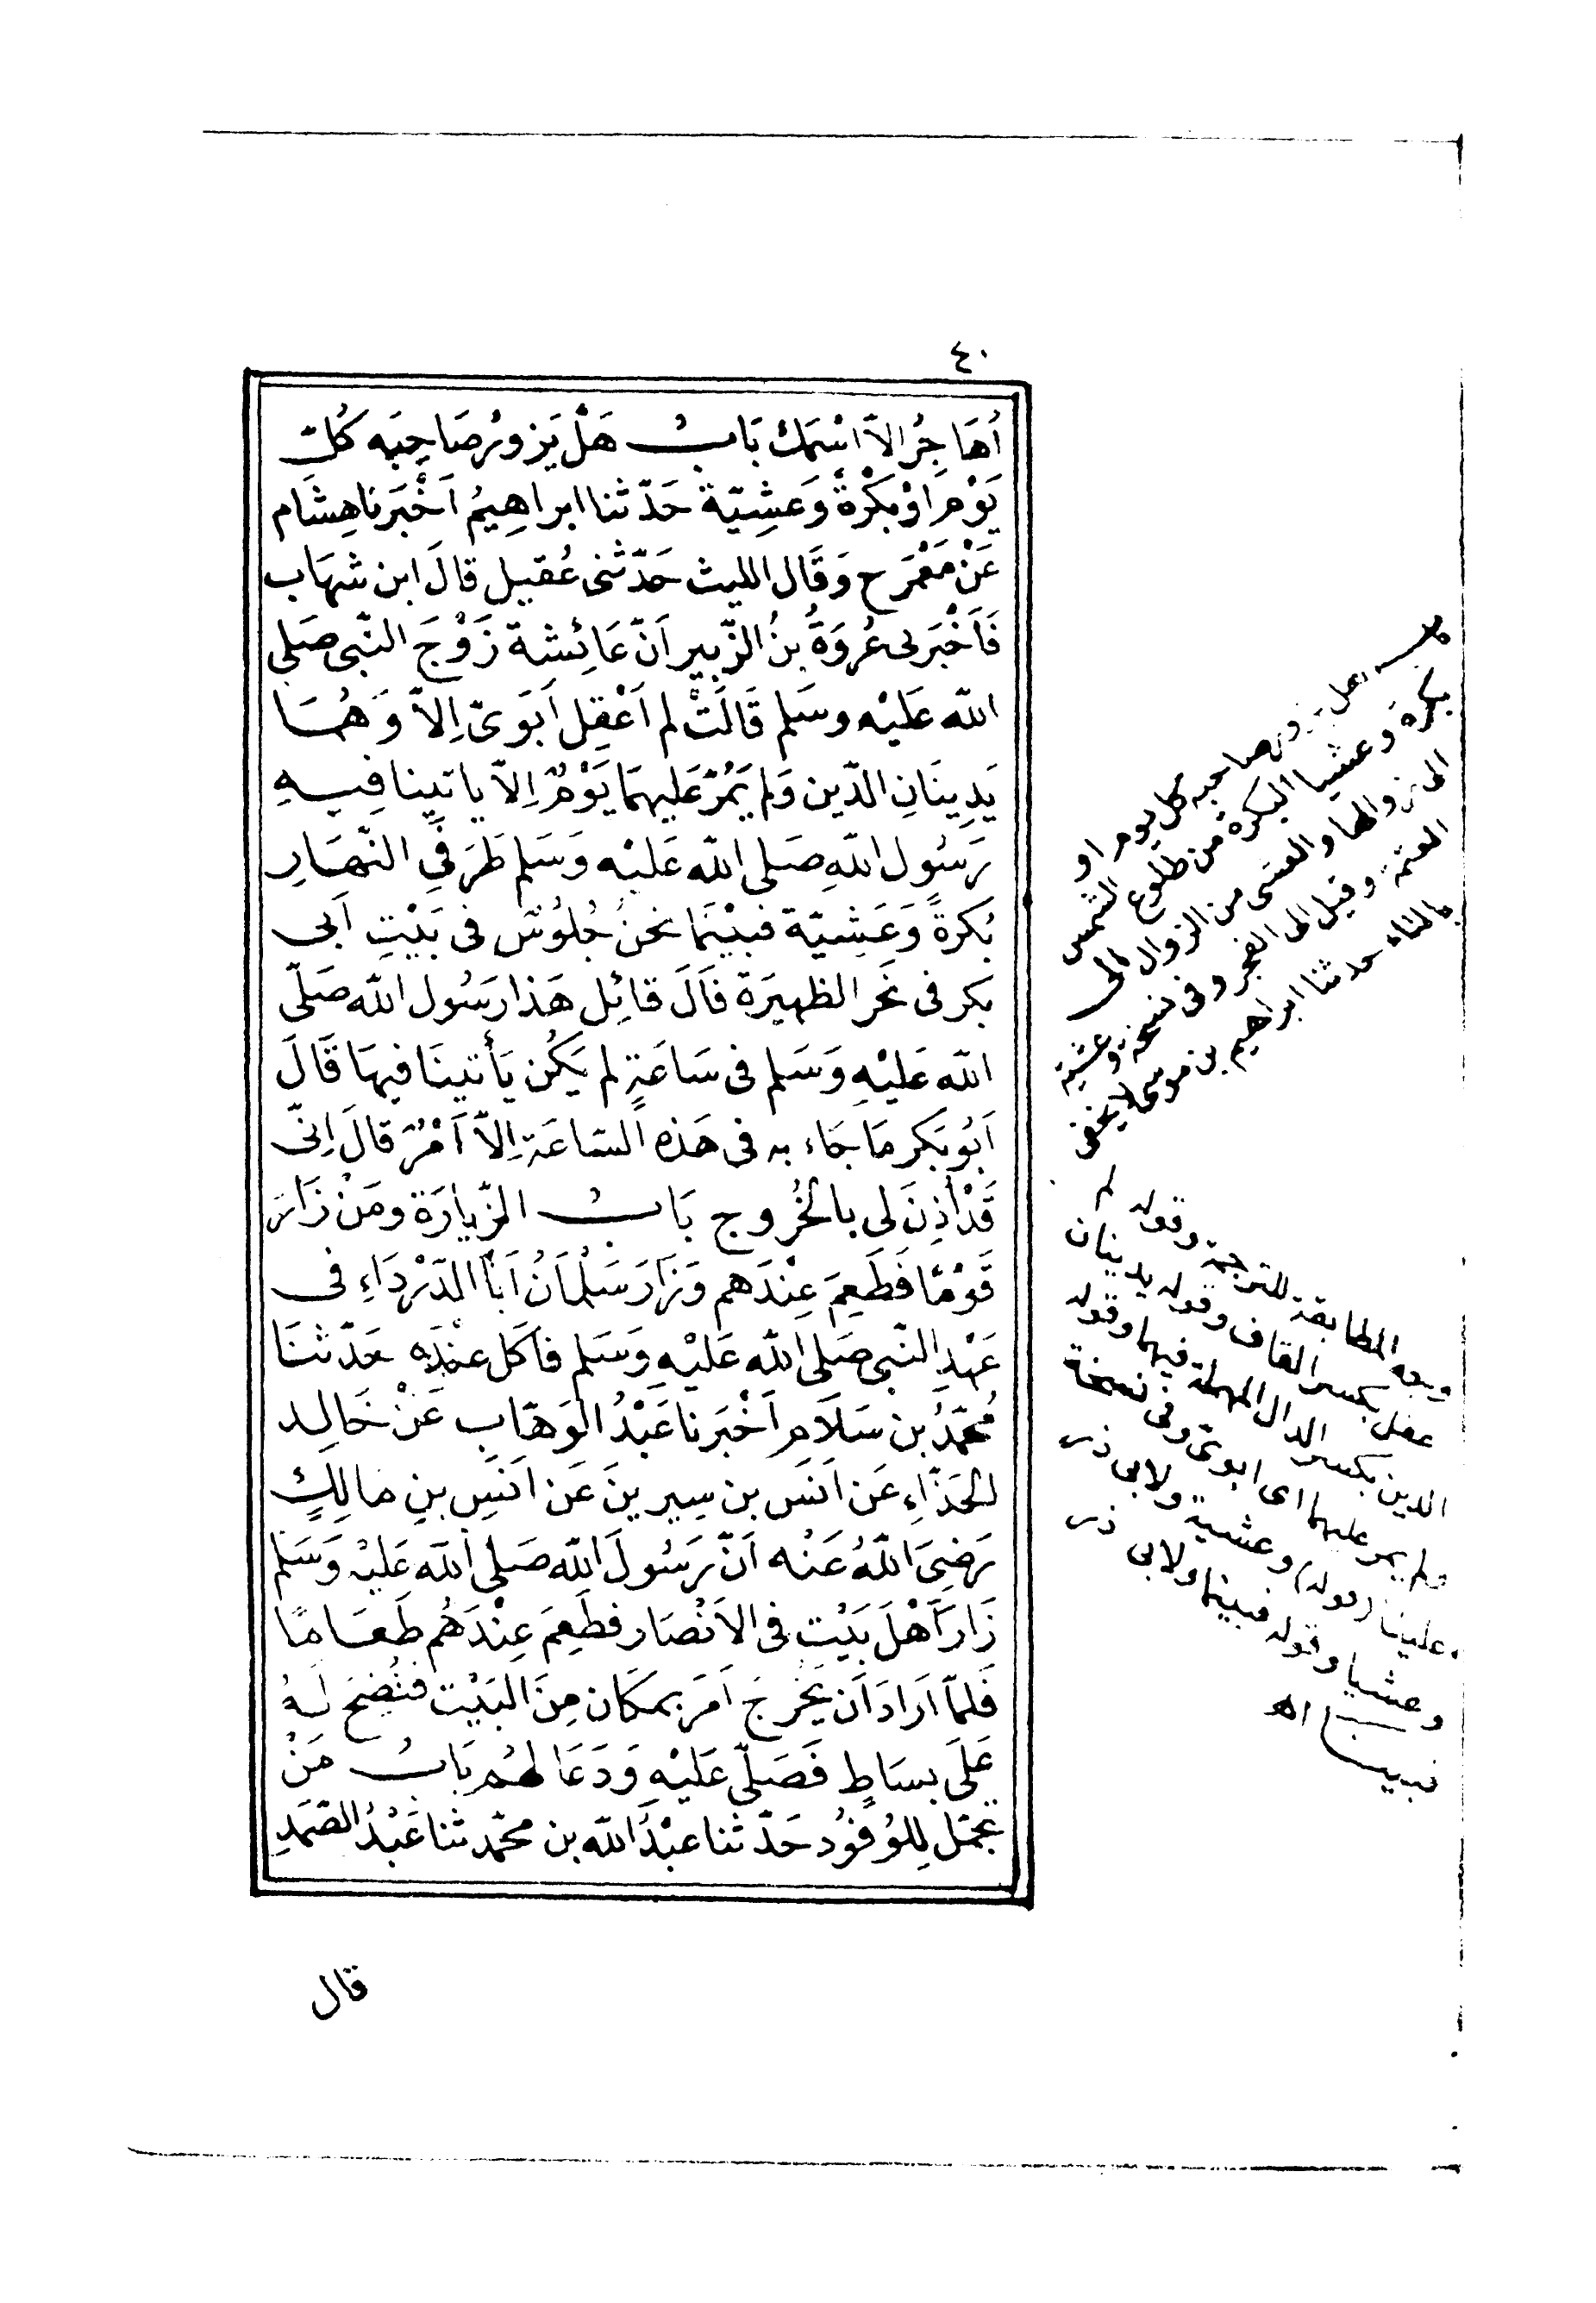 ٤٠
اُهَاجِرُ الاَّ اسْمَكَ بَابُ هَلْ يَزورُ صَاحِبَه كُلّ
يَوْم اَوْ بُكْرَةً وَعَشِيّة حَدّثنا ابراهِيمُ اَخْبَرنا هِشَام
عَنْ مَعْمَرٍ ح وَقَال الليث حَدّثنى عُقيل قالَ ابن شهَاب
فَاَخْبَرنى عُروَةُ بنُ الزّبير اَنّ عَائِشة زَوْجَ النّبى صَلى
الله عَليْه وسَلم قَالَتْ لم اَعْقِل اَبَوَىّ اِلاّ وَهُمَا
يَدِينَانِ الدّين وَلم يَمُرّ عَليهمَا يَوْمٌ اِلاّ ياتينا فِيهِ
رَسُول اللهِ صَلى الله عَليْه وَسَلم طَرَفَىِ النّهَارِ
بُكرَةً وَعَشِيّة فبيْنَما نحنُ جُلوُسٌ فى بَيْتِ اَبى
بكر فى نَحَر الظهيرَة قَالَ قائِل هَذا رَسُول الله صَلّى
الله عَليْهِ وَسَلم فى سَاعَةٍ لم يَكُن يَأتينَا فيهَا قَالَ
اَبُو بَكر مَا جَاء به فى هَذه السّاعَة اِلاّ اَمْرٌ قالَ اِنّى
قَدْ أُذِنَ لى بالخُروج بَابُ الزّيارَة ومَنْ زَارَ
قَوْمًا فَطَعِمَ عِنْدَهم وَزَارَ سَلْمَانُ اَبَا الدّرْدَاءِ فى
عَهْدِ النّبى صَلى الله عَليْهِ وَسَلم فاَكَل عنْدَه حَدّثنَا
مُحمّدُ بن سَلاَم اَخْبَرنا عَبْدُ الوَهّابِ عَنْ خَالِد
الحَذّاءِ عَن اَنَس بن سِيرينَ عَن اَنَسِ بنِ مَالِكٍ
رَضِىَ اللهُ عَنْه اَنّ رَسُولَ الله صَلى الله عَليْه وَسَلم
زَارَ اَهْلَ بَيْتٍ فى الاَنْصَار فطَعِمَ عِنْدَهُم طَعَامًا
فَلمّا اَرَادَ اَن يَخْرجَ اَمَرَ بمكَان مِنَ البَيْت فنُضِحَ لَهُ
عَلَى بسَاطٍ فَصَلّى عَليْهِ وَدَعَا لهُم بَابُ مَنْ
تجَمّل لِلوُفوُد حَدّثنا عبْدُ الله بن محمّد ثنا عَبْدُ الصّمَدِ
قال
باب هل يزور صاحبه كل يوم او
بكرة وعشيا البكرة من طلوع الشمس
الى زوالها والعشى من الزوال الى
العتمة وقيل الى الفجر وفى نسخة وعشية
بالتاء حدثنا ابراهيم بن موسى لا يخفى
وجه المطابقة للترجمة وقوله لم
عقل بكسر القاف وقوله يدينان
الدين بكسر الدال المهملة فيهما وقوله
ولم يمر عليهما اى ابوىّ وفى نسخة
علينا (قوله) وعشية ولابى ذر
وعشيا وقوله فبينما ولابى ذر
فبينا اهـ